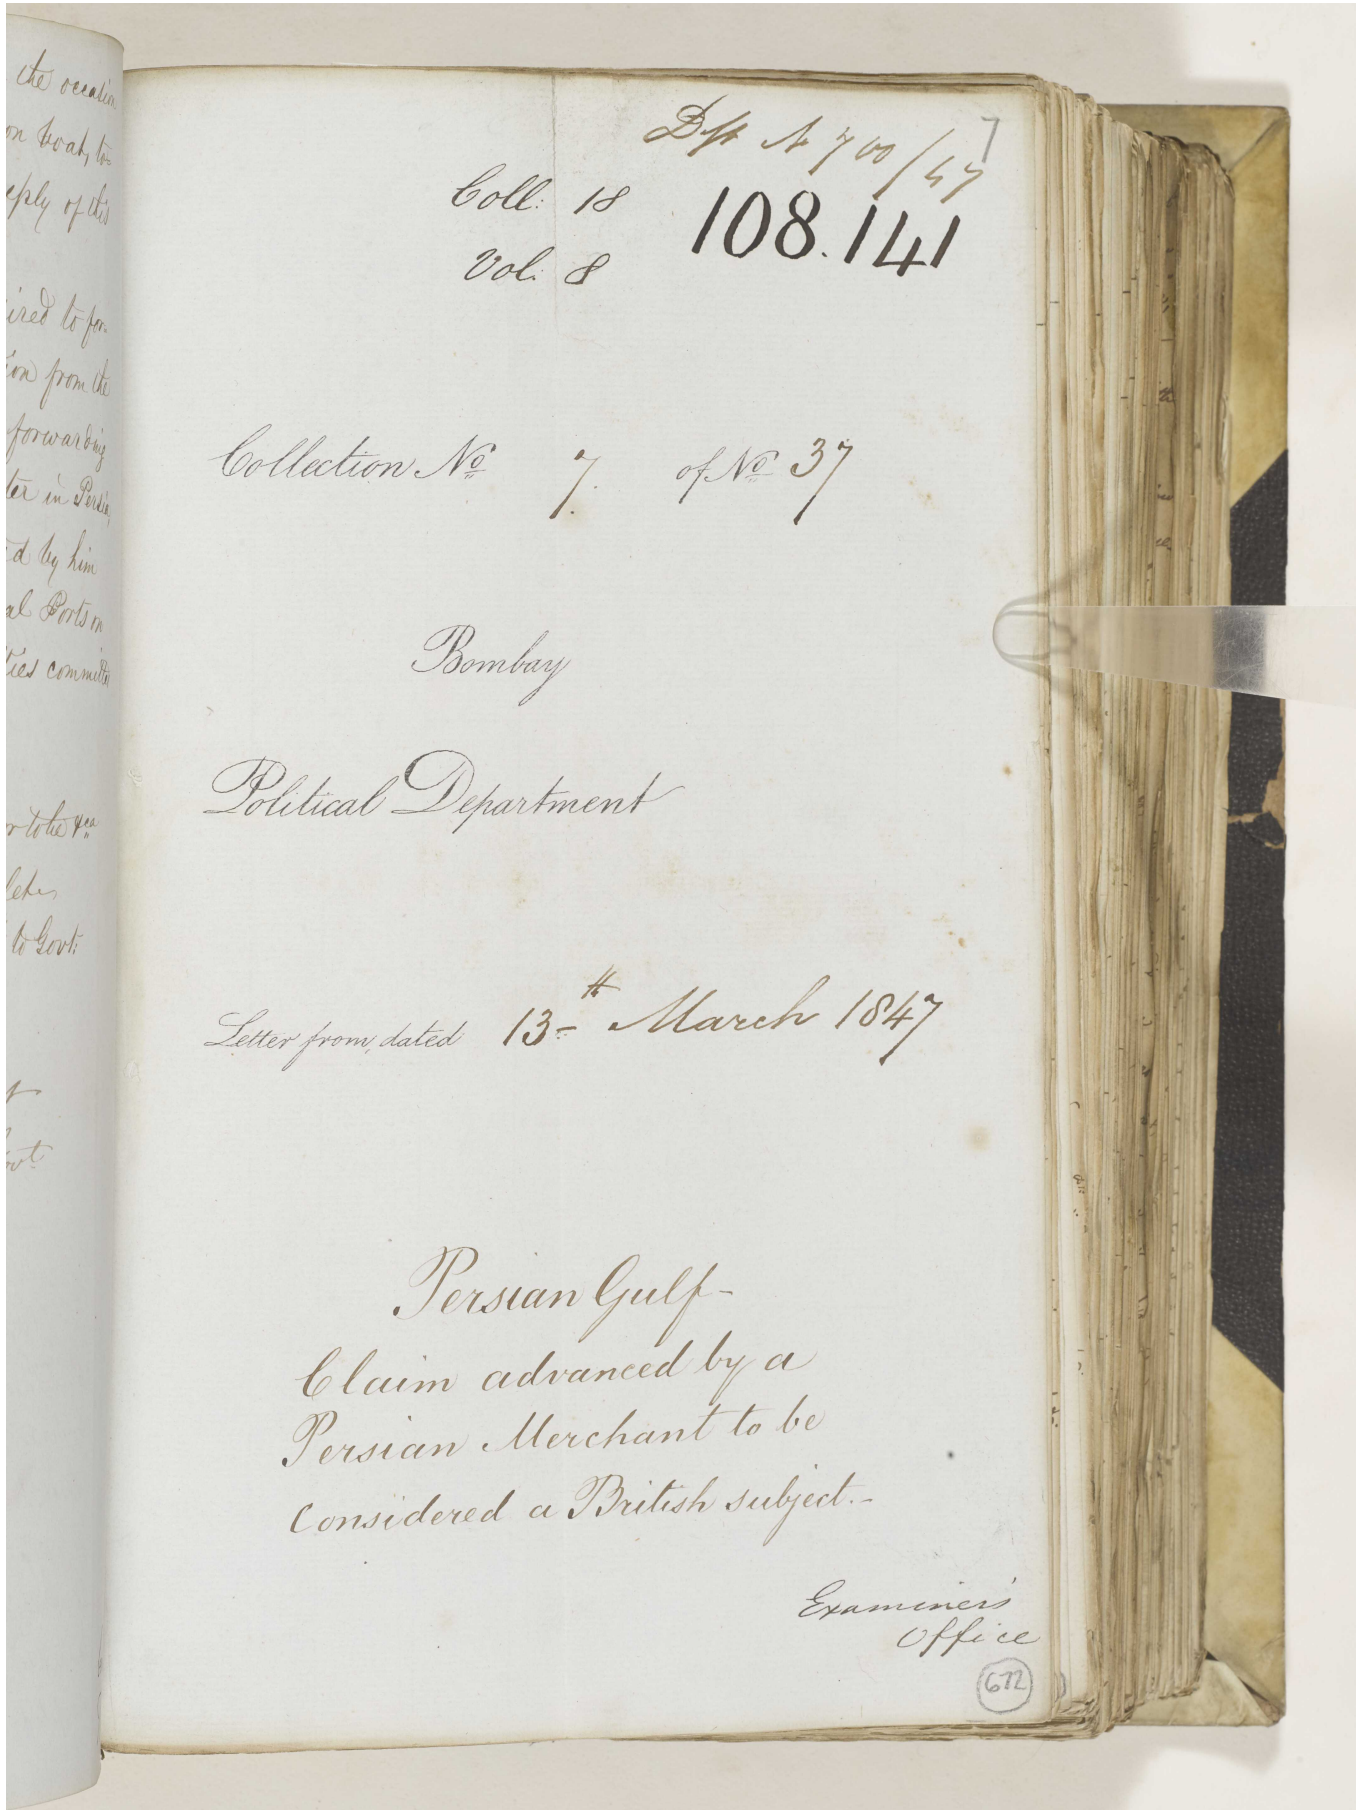 the occasion
on boat, to-
eply of this
ired to for-
on from the
forwarding
ter in Persia,
d by him
al Ports on
ties committed
to Govt:
7
Dft No 700/47
Coll: 18
108.141
Vol: 8
Collection No 7. of No 37
Bombay
Political Department
Letter from, dated 13th March 1847
Persian Gulf-
Claim advanced by a
Persian Merchant to be
considered a British subject.-
Examiner's
Office
672